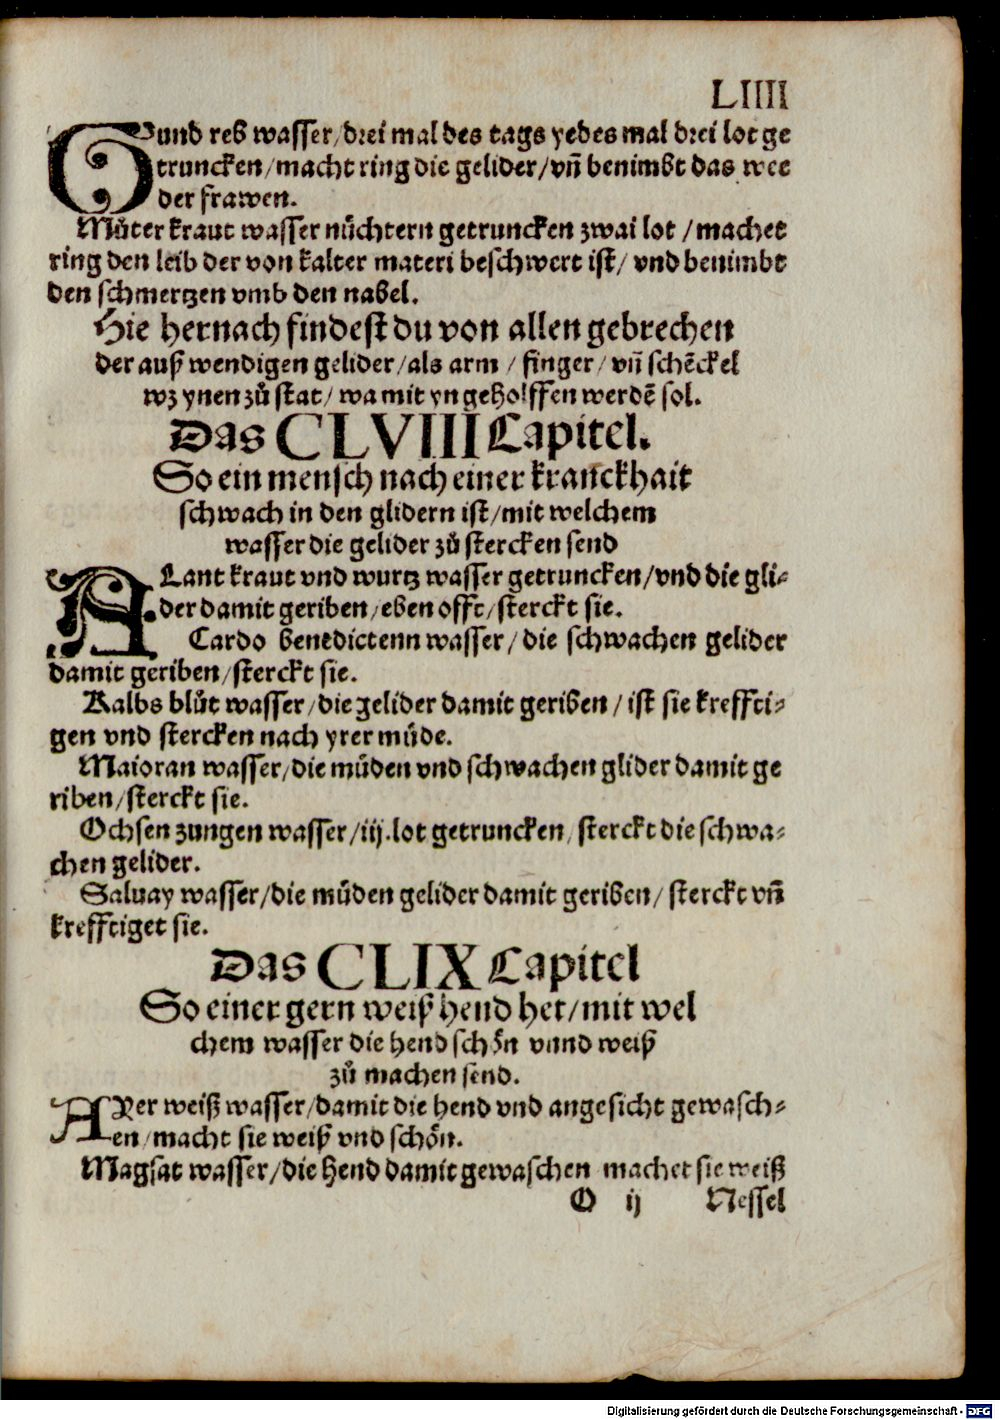 LIIII
Gund reb wasser/drei mal des tags yedes mal drei lot ge
truncken/macht ring die gelider/vn̄ benimbt das wee
der frawen.
Můter kraut wasser nüchtern getruncken zwai lot/machet
ring den leib der von kalter materi beschwert ist/vnd benimbt
den schmertzen vmb den nabel.
Hie hernach findest du von allen gebrechen
der auß wendigen gelider/als arm/finger/vn̄ schēckel
wz ynen zů stat/wa mit yn geholffen werdē sol.
Das CLVIII Capitel.
So ein mensch nach einer kranckhait
schwach in den glidern ist/mit welchem
wasser die gelider zů stercken send
ALant kraut vnd wurtz wasser getruncken/vnd die gli⸗
der damit geriben/eben offt/sterckt sie.
Cardo benedictenn wasser/die schwachen gelider
damit geriben/sterckt sie.
Kalbs blůt wasser/die gelider damit geriben/ist sie kreffti⸗
gen vnd stercken nach yrer müde.
Maioran wasser/die müden vnd schwachen glider damit ge
riben/sterckt sie.
Ochsen zungen wasser/iij.lot getruncken/sterckt die schwa⸗
chen gelider.
Saluay wasser/die müden gelider damit geriben/sterckt vn̄
krefftiget sie.
Das CLIX Capitel
So einer gern weiß hend het/mit wel
chem wasser die hend schön vnnd weiß
zů machen send.
AYer weiß wasser/damit die hend vnd angesicht gewasch⸗
en/macht sie weiß vnd schön.
Magsat wasser/die hend damit gewaschen machet sie weiß
O ij Nessel
Digitalisierung gefördert durch die Deutsche Forschungsgemeinschaft - DFG